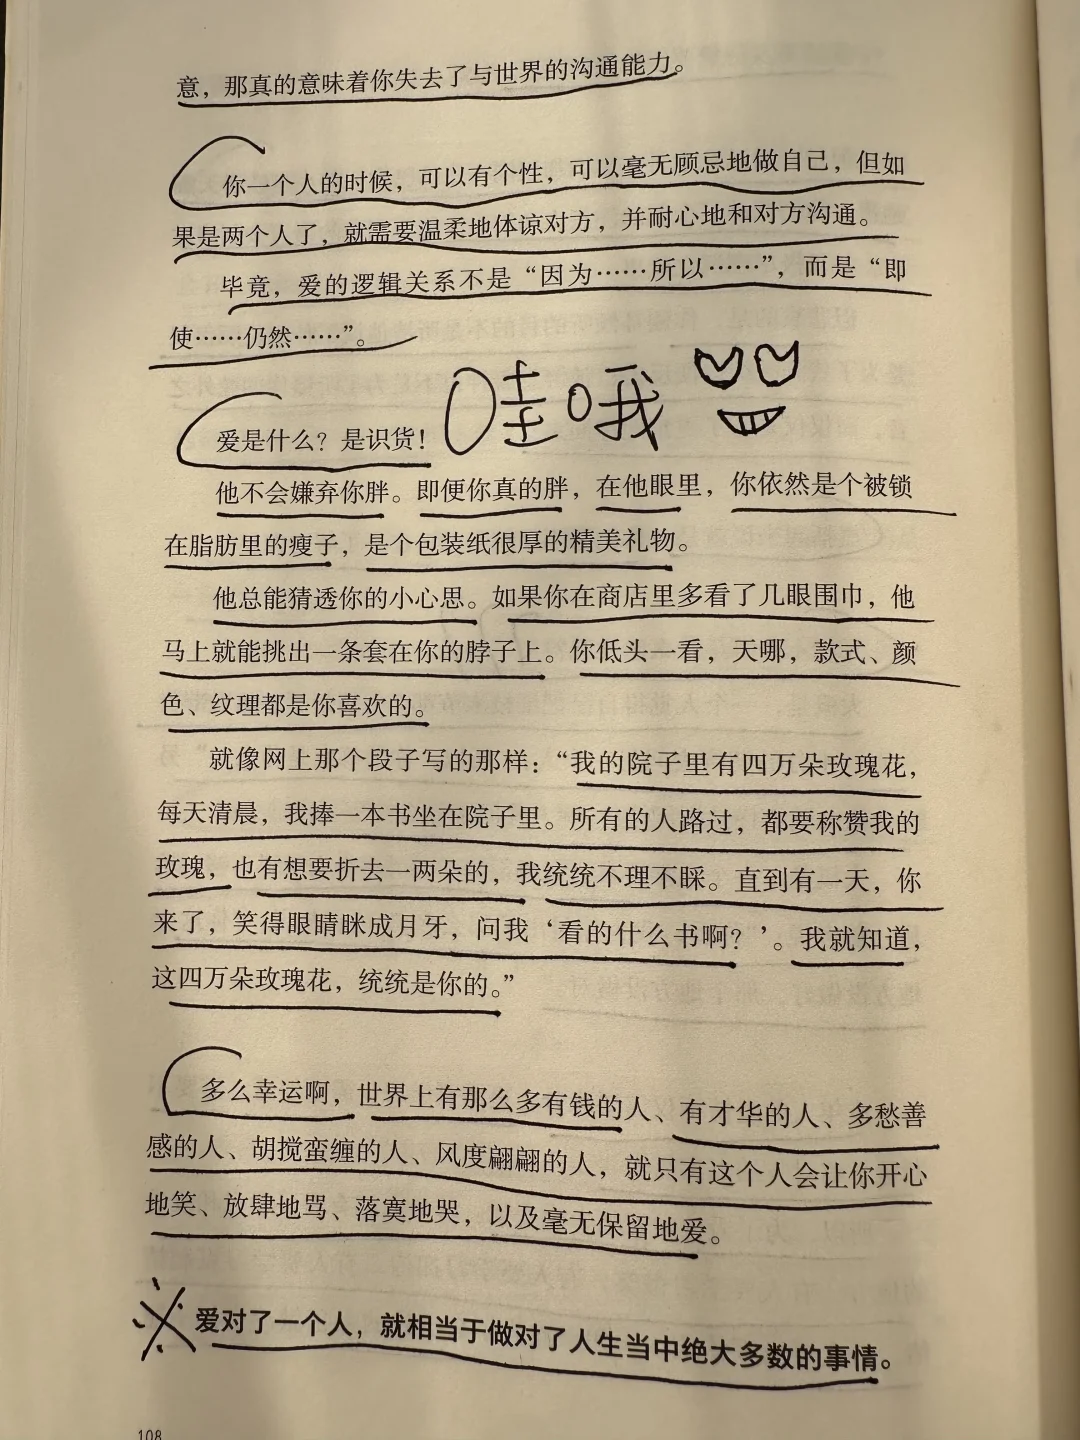 意，那真的意味着你失去了与世界的沟通能力。
你一个人的时候，可以有个性，可以毫无顾忌地做自己，但如
果是两个人了，就需要温柔地体谅对方，并耐心地和对方沟通。
毕竟，爱的逻辑关系不是“因为……所以……”，而是“即
使……仍然……”。
哇哦
爱是什么？是识货！
他不会嫌弃你胖。即便你真的胖，在他眼里，你依然是个被锁
在脂肪里的瘦子，是个包装纸很厚的精美礼物。
他总能猜透你的小心思。如果你在商店里多看了几眼围巾，他
马上就能挑出一条套在你的脖子上。你低头一看，天哪，款式、颜
色、纹理都是你喜欢的。
就像网上那个段子写的那样：“我的院子里有四万朵玫瑰花，
每天清晨，我捧一本书坐在院子里。所有的人路过，都要称赞我的
玫瑰，也有想要折去一两朵的，我统统不理不睬。直到有一天，你
来了，笑得眼睛眯成月牙，问我‘看的什么书啊？’。我就知道，
这四万朵玫瑰花，统统是你的。”
多么幸运啊，世界上有那么多有钱的人、有才华的人、多愁善
感的人、胡搅蛮缠的人、风度翩翩的人，就只有这个人会让你开心
地笑、放肆地骂、落寞地哭，以及毫无保留地爱。
爱对了一个人，就相当于做对了人生当中绝大多数的事情。
108